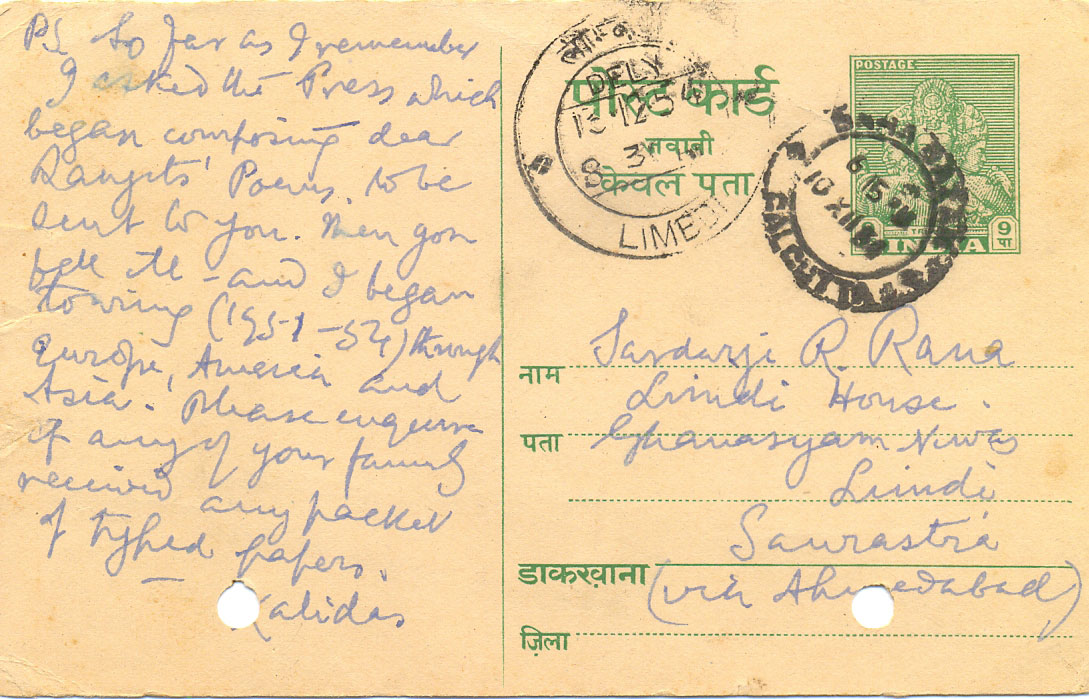 PS So far as I remember
I asked the Press which
began composing dear
Ranjits' Poems, to be
sent to you. Then you
fell ill - and I began
touring (1951-54) through
Europe, America and
Asia. Please enquire
if any of your family
received any packet
of typed papers.
Kalidas
पोस्ट कार्ड
जवाबी
केवल पता
DELY
LIMBDI
POSTAGE
INDIA
9
पा
6 15
10 XII
CALCUTTA
नाम
Sardarji R. Rana
Limdi House.
पता
Ghanasyam Niwas
Limdi
Saurastra
डाकखाना
(via Ahmedabad)
ज़िला